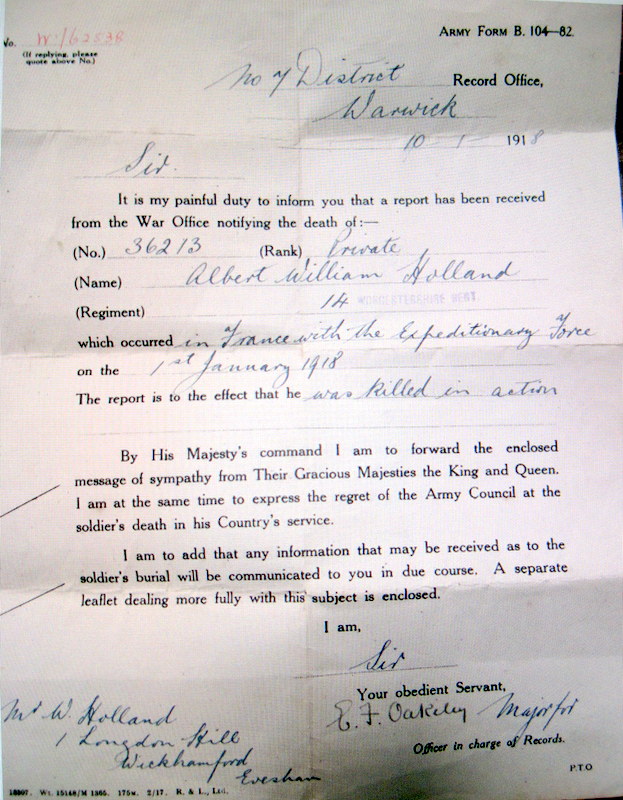 ARMY FORM B. 104—82.
No. W:/62538
(If replying, please
quote above No.)
No 7 District Record Office,
Warwick
10 1 1918
Sir.
It is my painful duty to inform you that a report has been received
from the War Office notifying the death of:—
(No.) 36213 (Rank) Private
(Name) Albert William Holland
(Regiment) 14 WORCESTERSHIRE REGT.
which occurred in France with the Expeditionary Force
on the 1st January 1918
The report is to the effect that he was killed in action
By His Majesty's command I am to forward the enclosed
message of sympathy from Their Gracious Majesties the King and Queen.
I am at the same time to express the regret of the Army Council at the
soldier's death in his Country's service.
I am to add that any information that may be received as to the
soldier's burial will be communicated to you in due course. A separate
leaflet dealing more fully with this subject is enclosed.
I am,
Sir
Your obedient Servant,
E. F. Oakeley Major for
Officer in charge of Records.
Mr W. Holland
1 Longdon Hill
Wickhamford
Evesham
P.T.O
18897. Wt. 15148/M 1365. 175M. 2/17. R. & L., Ltd.